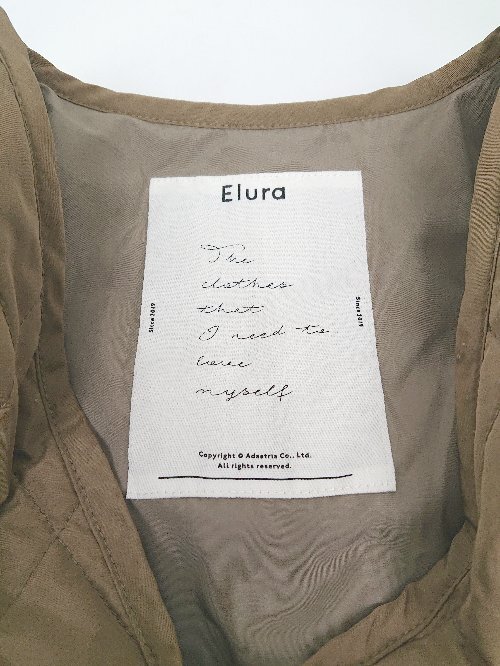 Elura
The
clothes
that
I need to
love
myself
Since 2019
Since 2019
Copyright © Adastria Co., Ltd.
All rights reserved.